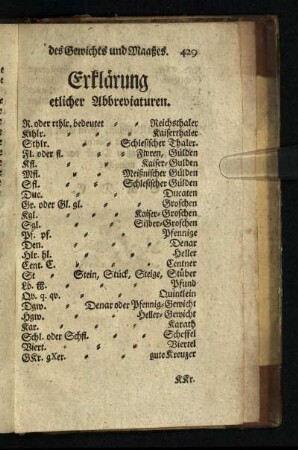 des Gewichts und Maaßes. 429
Erklärung
etlicher Abbreviaturen.
R. oder rthlr. bedeutet Reichsthaler
Kthlr. Kaiserthaler
Sthlr. Schlesischer Thaler.
Fl. oder fl. Floren, Gülden
Kfl. Kaiser-Gulden
Mfl. Meißnischer Gülden
Sfl. Schlesischer Gülden
Duc. Ducaten
Gr. oder Gl. gl. Groschen
Kgl. Kaiser-Groschen
Sgl. Silber-Groschen
Pf. pf. Pfennige
Den. Denar
Hlr. hl. Heller
Cent. C. Centner
St Stein, Stück, Steige, Stüber
Lb. ℔. Pfund
Qv. q. qv. Quintlein
Dgw. Denar oder Pfennig-Gewicht
Hgw. Heller-Gewicht
Kar. Karath
Schl. oder Schfl. Scheffel
Viert. Viertel
GKr. gXer. gute Kreuzer
KKr.